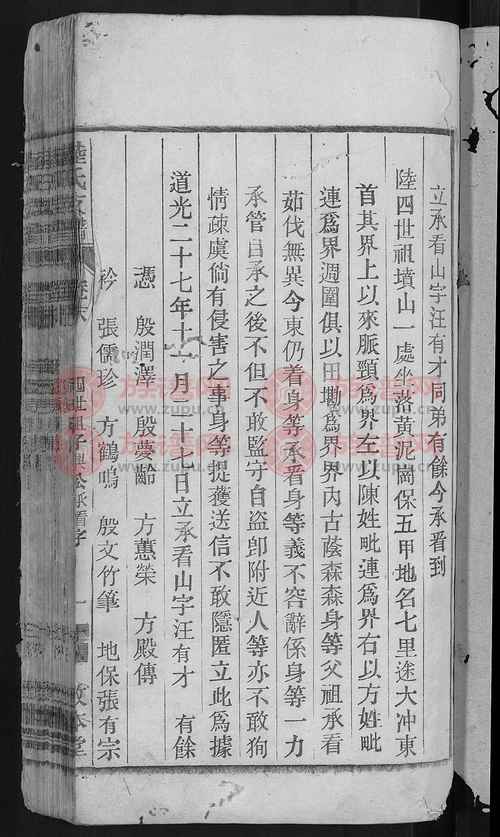 立承看山字汪有才同弟有餘今承看到
陸四世祖墳山一處坐落黃泥岡保五甲地名七里途大冲東
首其界上以來脈頸爲界左以陳姓毗連爲界右以方姓毗
連爲界週圍俱以田塝爲界界內古蔭森森身等父祖承看
茹伐無異今東仍着身等承看身等義不容辭係身等一力
承管自承之後不但不敢監守自盜卽附近人等亦不敢狥
情疎虞倘有侵害之事身等提獲送信不敢隱匿立此爲據
道光二十七年十一月二十七日立承看山字汪有才　有餘
憑　殷潤澤　殷憂齡　方蕙榮　方殿傳
衿　張儒珍　方鶴鳴　殷文竹筆　地保張有宗
陸氏
四世祖
看字
一
敦本堂
族譜网
www.zupu.cn